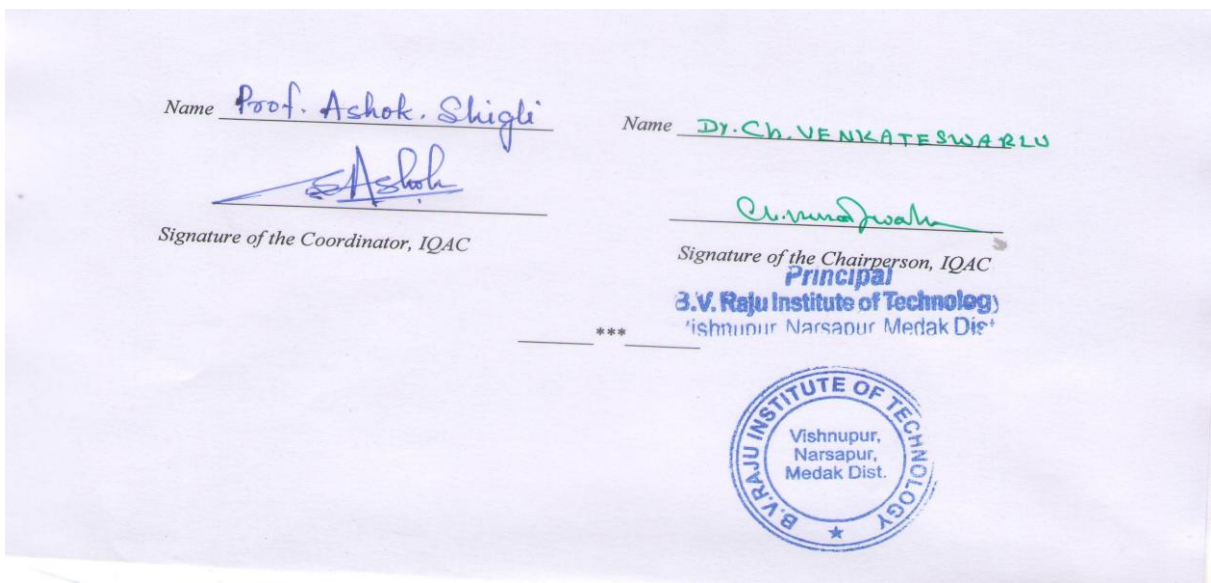 Name Prof. Ashok. Shigli
Ashok
Signature of the Coordinator, IQAC
Name Dr. Ch. VENKATESWARLU
Signature of the Chairperson, IQAC
Principal
B.V. Raju Institute of Technology
Vishnupur Narsapur Medak Dist
***
B.V.RAJU INSTITUTE OF TECHNOLOGY
Vishnupur,
Narsapur,
Medak Dist.